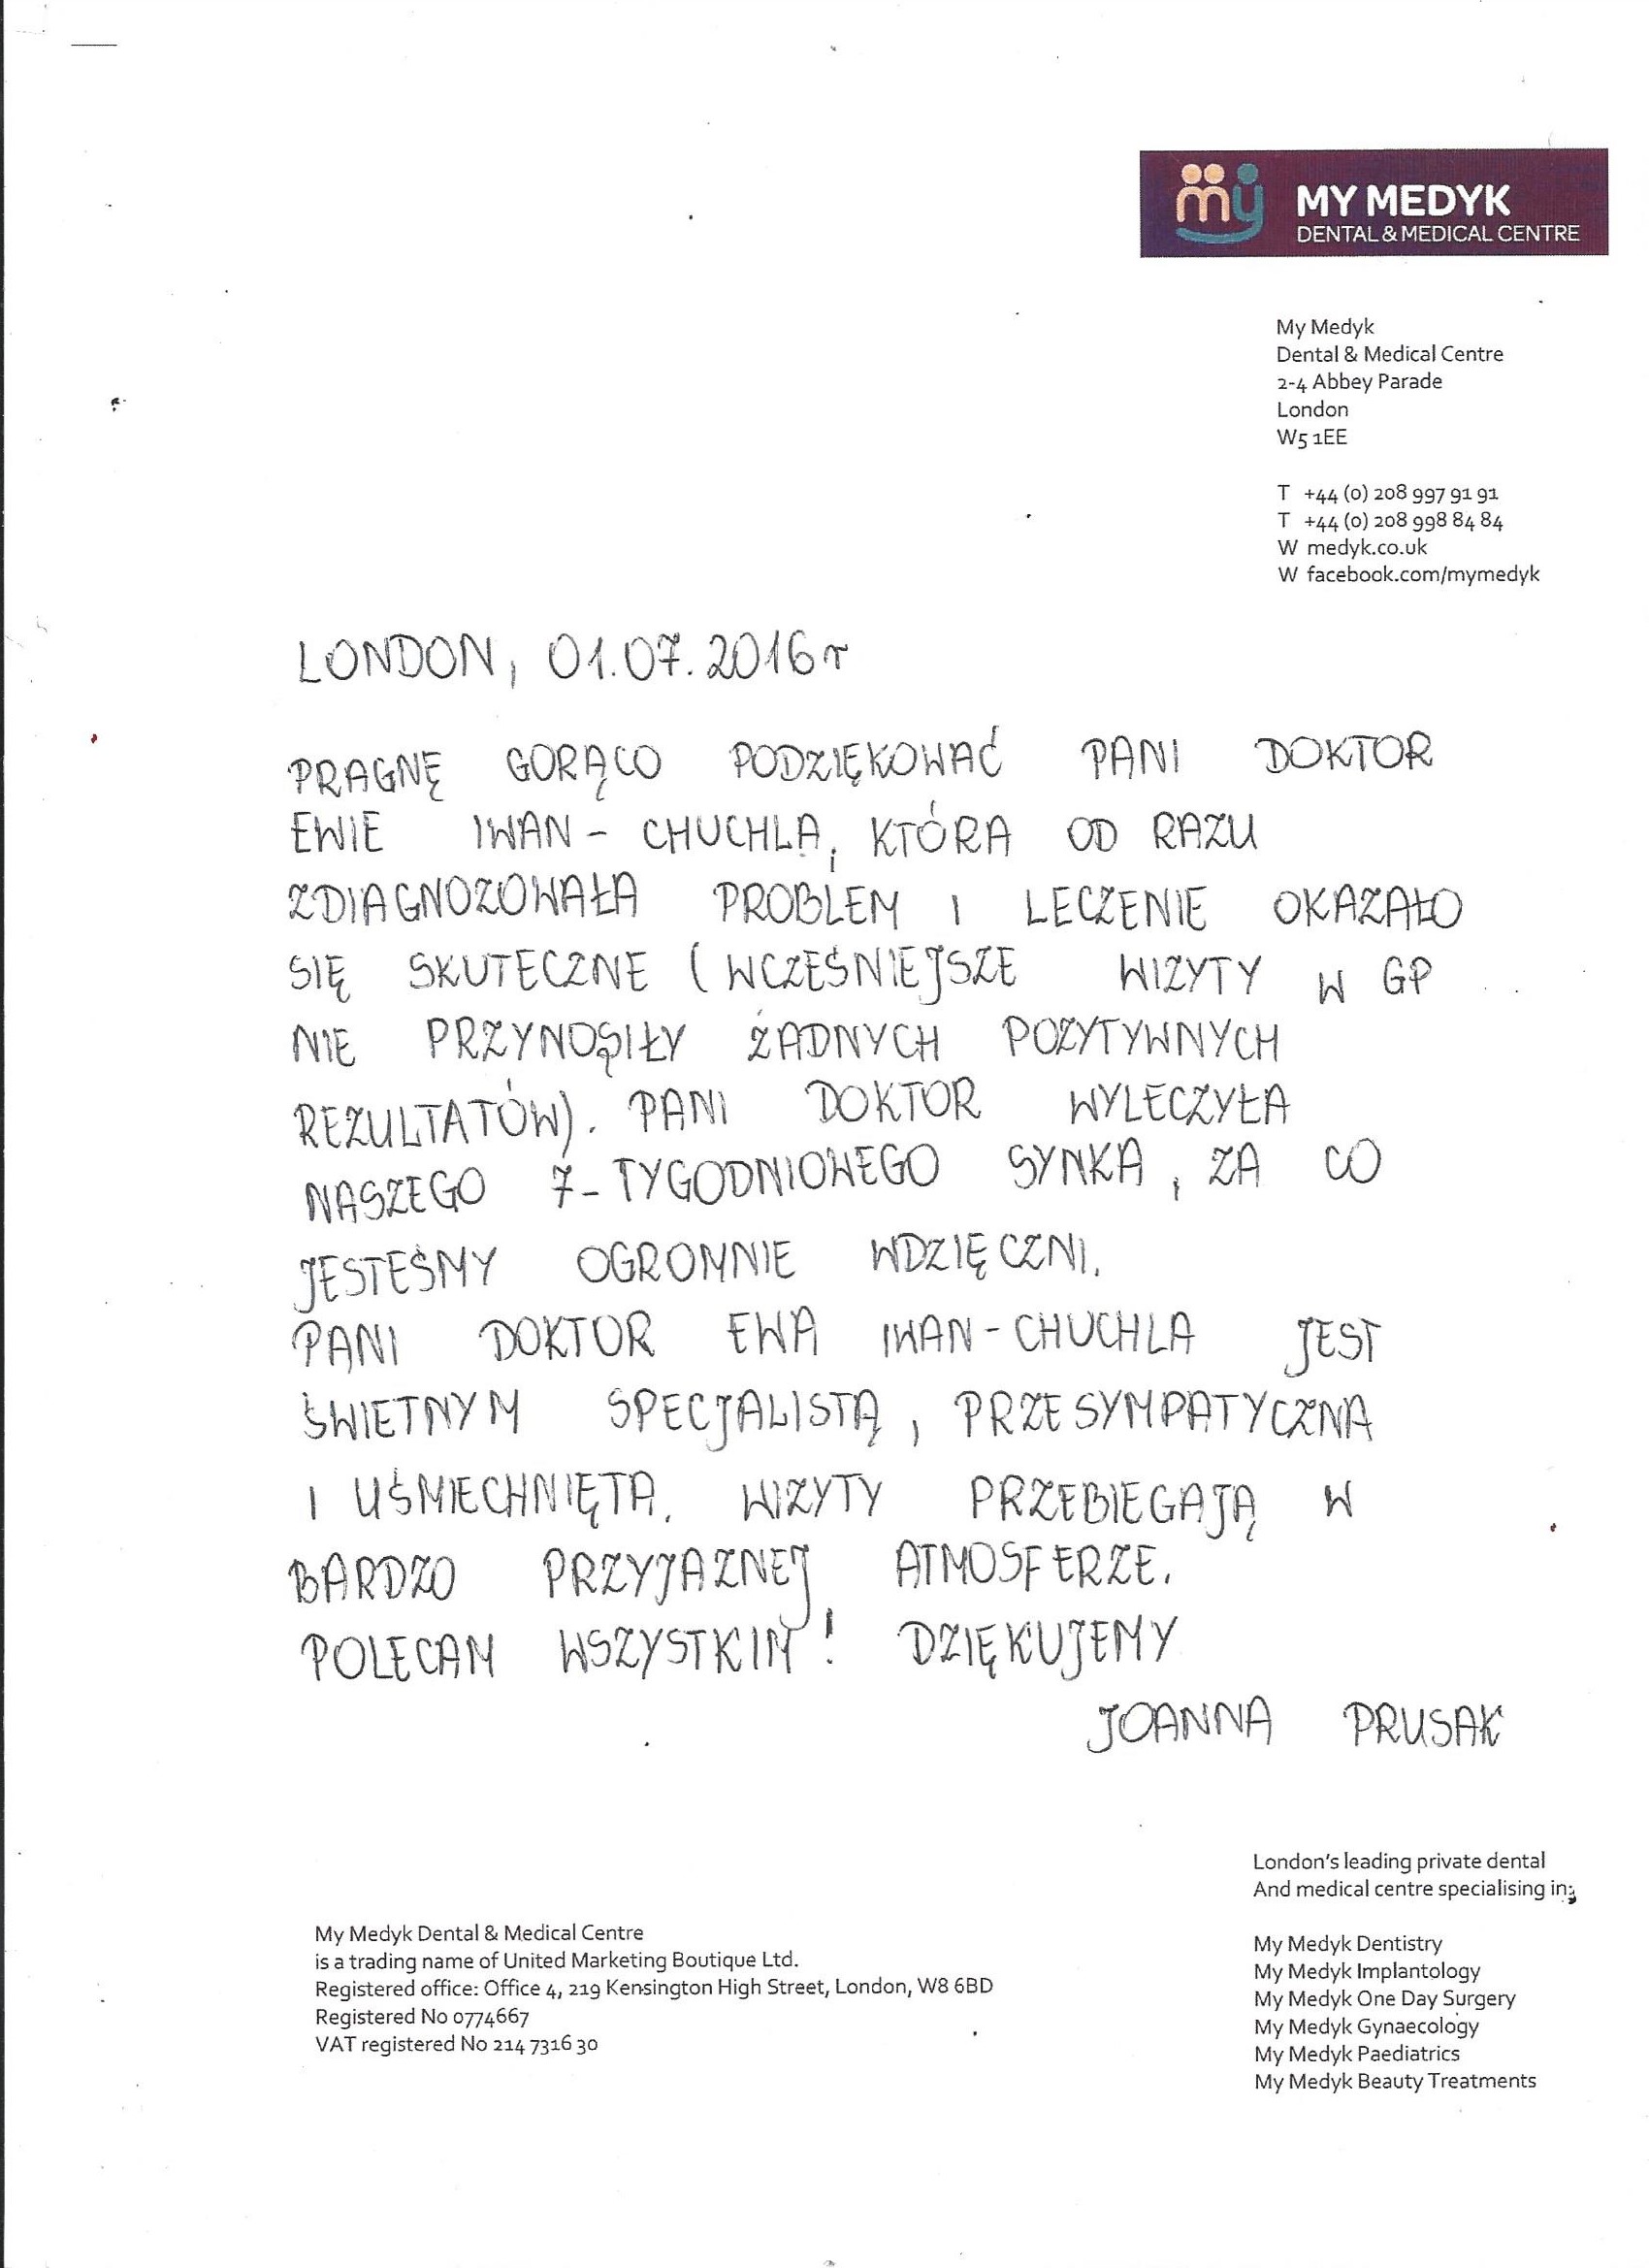 my MY MEDYK
DENTAL & MEDICAL CENTRE
My Medyk
Dental & Medical Centre
2-4 Abbey Parade
London
W5 1EE
T +44 (0) 208 997 91 91
T +44 (0) 208 998 84 84
W medyk.co.uk
W facebook.com/mymedyk
LONDON, 01.07.2016r
PRAGNĘ GORĄCO PODZIĘKOWAĆ PANI DOKTOR
EWIE IWAN - CHUCHLA, KTÓRA OD RAZU
ZDIAGNOZOWAŁA PROBLEM I LECZENIE OKAZAŁO
SIĘ SKUTECZNE (WCZEŚNIEJSZE WIZYTY W GP
NIE PRZYNOSIŁY ŻADNYCH POZYTYWNYCH
REZULTATÓW). PANI DOKTOR WYLECZYŁA
NASZEGO 7-TYGODNIOWEGO SYNKA, ZA CO
JESTEŚMY OGROMNIE WDZIĘCZNI.
PANI DOKTOR EWA IWAN-CHUCHLA JEST
ŚWIETNYM SPECJALISTĄ, PRZESYMPATYCZNA
I UŚMIECHNIĘTA. WIZYTY PRZEBIEGAJĄ W
BARDZO PRZYJAZNEJ ATMOSFERZE.
POLECAM WSZYSTKIM! DZIĘKUJEMY
JOANNA PRUSAK
London's leading private dental
And medical centre specialising in:
My Medyk Dentistry
My Medyk Implantology
My Medyk One Day Surgery
My Medyk Gynaecology
My Medyk Paediatrics
My Medyk Beauty Treatments
My Medyk Dental & Medical Centre
is a trading name of United Marketing Boutique Ltd.
Registered office: Office 4, 219 Kensington High Street, London, W8 6BD
Registered No 0774667
VAT registered No 214 7316 30